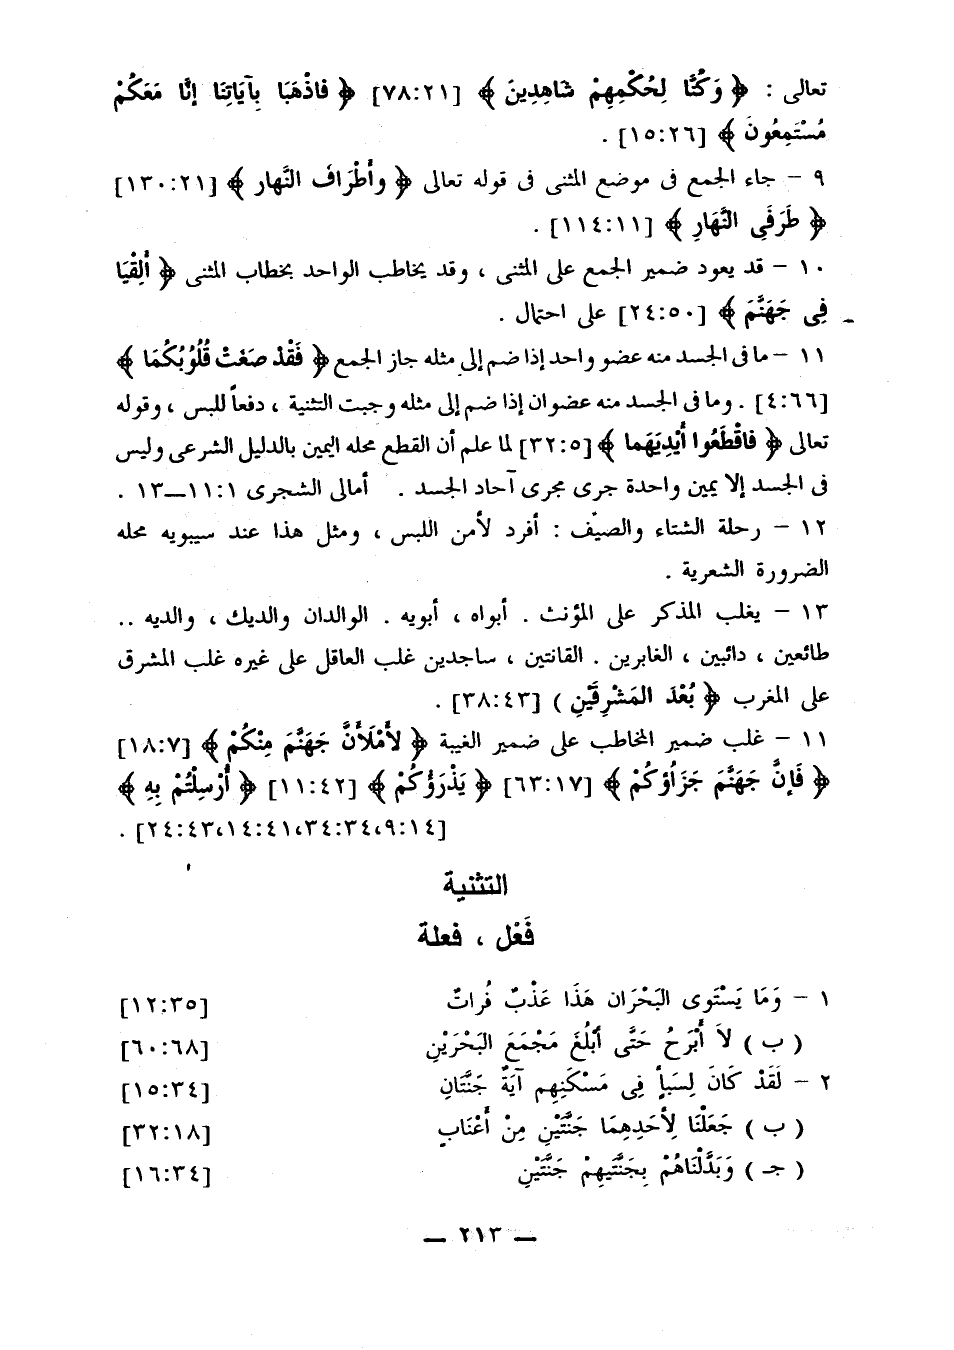 تعالى : ﴿ وَكُنَّا لِحُكْمِهِمْ شَاهِدِينَ ﴾ [٧٨:٢١] ﴿ فاذْهَبَا بِآيَاتِنَا إنَّا مَعَكُمْ
مُسْتَمِعُونَ ﴾ [١٥:٢٦] .
٩ – جاء الجمع فى موضع المثنى فى قوله تعالى ﴿ وأَطْرَافَ النَّهار ﴾ [١٣٠:٢١]
﴿ طَرَفَى النَّهَارِ ﴾ [١١٤:١١] .
١٠ – قد يعود ضمير الجمع على المثنى ، وقد يخاطب الواحد بخطاب المثنى ﴿ أَلْقِيَا
فِى جَهَنَّمَ ﴾ [٢٤:٥٠] على احتمال .
١١ – ما فى الجسد منه عضو واحد إذا ضم إلى مثله جاز الجمع ﴿ فَقَدْ صَغَتْ قُلُوبُكُمَا ﴾
[٤:٦٦] . وما فى الجسد منه عضوان إذا ضم إلى مثله وجبت التثنية ، دفعاً للبس ، وقوله
تعالى ﴿ فاقْطَعُوا أَيْدِيَهَما ﴾ [٣٢:٥] لما علم أن القطع محله اليمين بالدليل الشرعى وليس
فى الجسد إلا يمين واحدة جرى مجرى آحاد الجسد . أمالى الشجرى ١١:١–١٣ .
١٢ – رحلة الشتاء والصيف : أفرد لأمن اللبس ، ومثل هذا عند سيبويه محله
الضرورة الشعرية .
١٣ – يغلب المذكر على المؤنث . أبواه ، أبويه . الوالدان والديك ، والديه ..
طائعين ، دائبين ، الغابرين . القانتين ، ساجدين غلب العاقل على غيره غلب المشرق
على المغرب ﴿ بُعْدَ المَشْرِقَيْنِ ) [٣٨:٤٣] .
١١ – غلب ضمير المخاطب على ضمير الغيبة ﴿ لأَمْلَأَنَّ جَهَنَّمَ مِنْكُمْ ﴾ [١٨:٧]
﴿ فَإنَّ جَهَنَّمَ جَزَاؤكُمْ ﴾ [٦٣:١٧] ﴿ يَذْرَؤُكُمْ ﴾ [١١:٤٢] ﴿ أُرْسِلْتُمْ بِهِ ﴾
[٩:١٤، ٣٤:٣٤، ١٤:٤١، ٢٤:٤٣] .
التثنية
فَعْل ، فعلة
١ – وَمَا يَسْتَوى البَحْرَان هَذَا عَذْبٌ فُراتٌ [١٢:٣٥]
( ب ) لاَ أَبْرَحُ حَتَّى أَبْلُغَ مَجْمَعَ البَحْرَيْنِ [٦٠:٦٨]
٢ – لَقَدْ كَانَ لِسَبَأٍ فِى مَسْكَنِهِم آيَةٌ جَنَّتَانِ [١٥:٣٤]
( ب ) جَعَلْنَا لِأَحَدِهِمَا جَنَّتَيْنِ مِنْ أَعْنَابٍ [٣٢:١٨]
( جـ ) وَبَدَّلْنَاهُمْ بِجَنَّتَيهِمْ جَنَّتَيْنِ [١٦:٣٤]
— ٢١٣ —